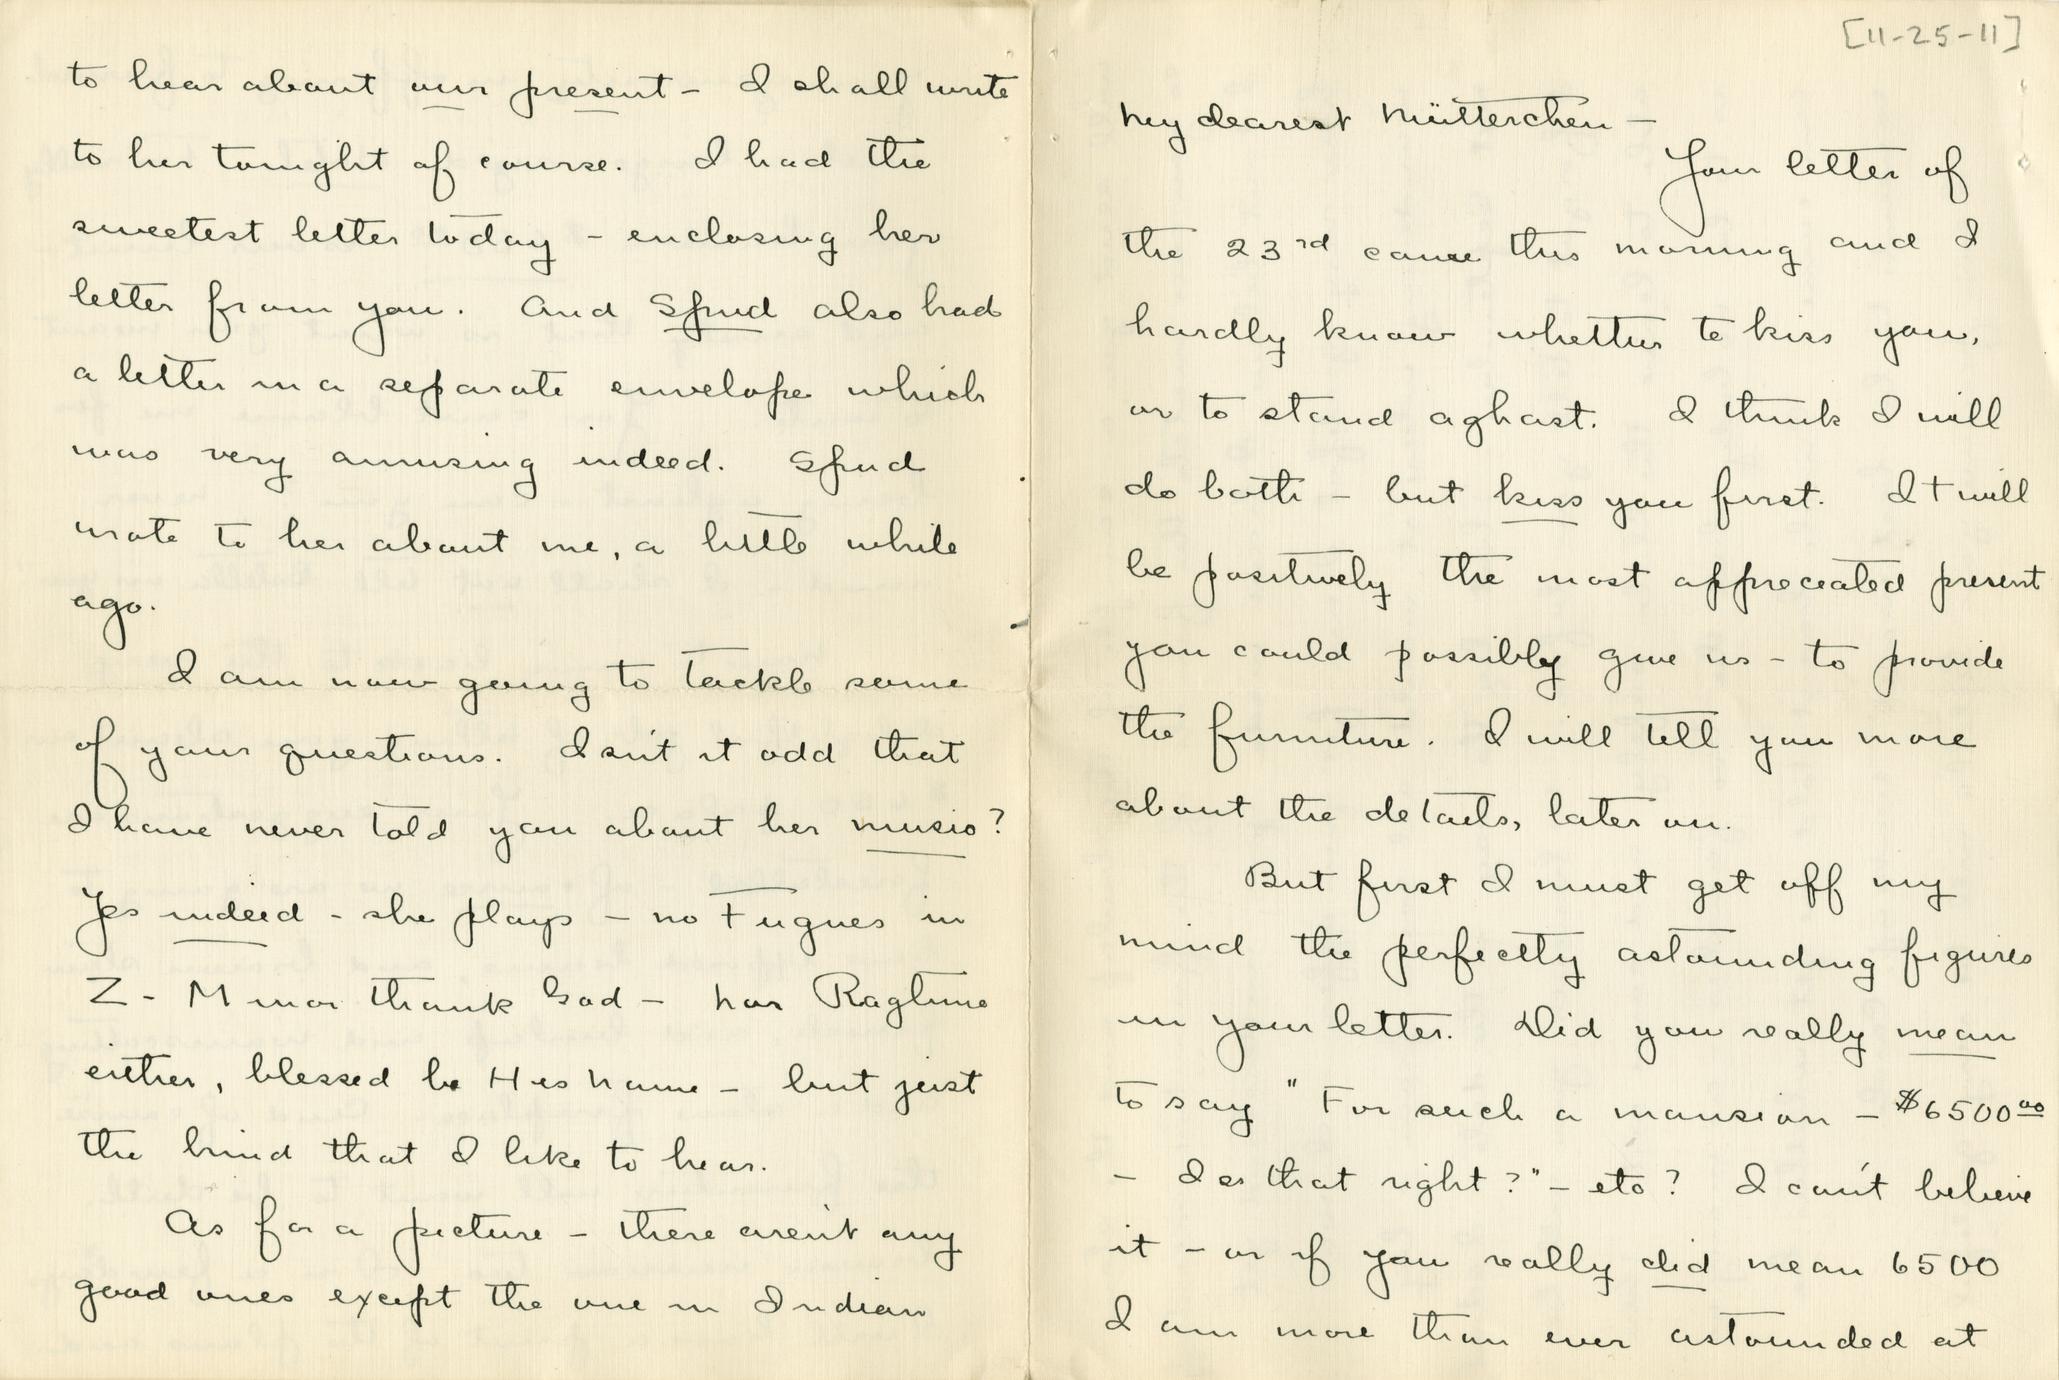 to hear about our present – I shall write
to her tonight of course. I had the
sweetest letter today – enclosing her
letter from you. And Spud also had
a letter in a separate envelope which
was very amusing indeed. Spud
wrote to her about me, a little while
ago.
I am now going to tackle some
of your questions. Isn't it odd that
I have never told you about her music?
Yes indeed – she plays – no Fugues in
Z - Minor thank God – nor Ragtime
either, blessed be His name – but just
the kind that I like to hear.
As for a picture – there aren't any
good ones except the one in Indian
[11-25-11]
My dearest Mütterchen –
Your letter of
the 23rd came this morning and I
hardly know whether to kiss you,
or to stand aghast. I think I will
do both – but kiss you first. It will
be positively the most appreciated present
you could possibly give us – to provide
the furniture. I will tell you more
about the details, later on.
But first I must get off my
mind the perfectly astounding figures
in your letter. Did you really mean
to say "For such a mansion – $6500.00
– Is that right?" – etc? I can't believe
it – or if you really did mean 6500
I am more than ever astounded at